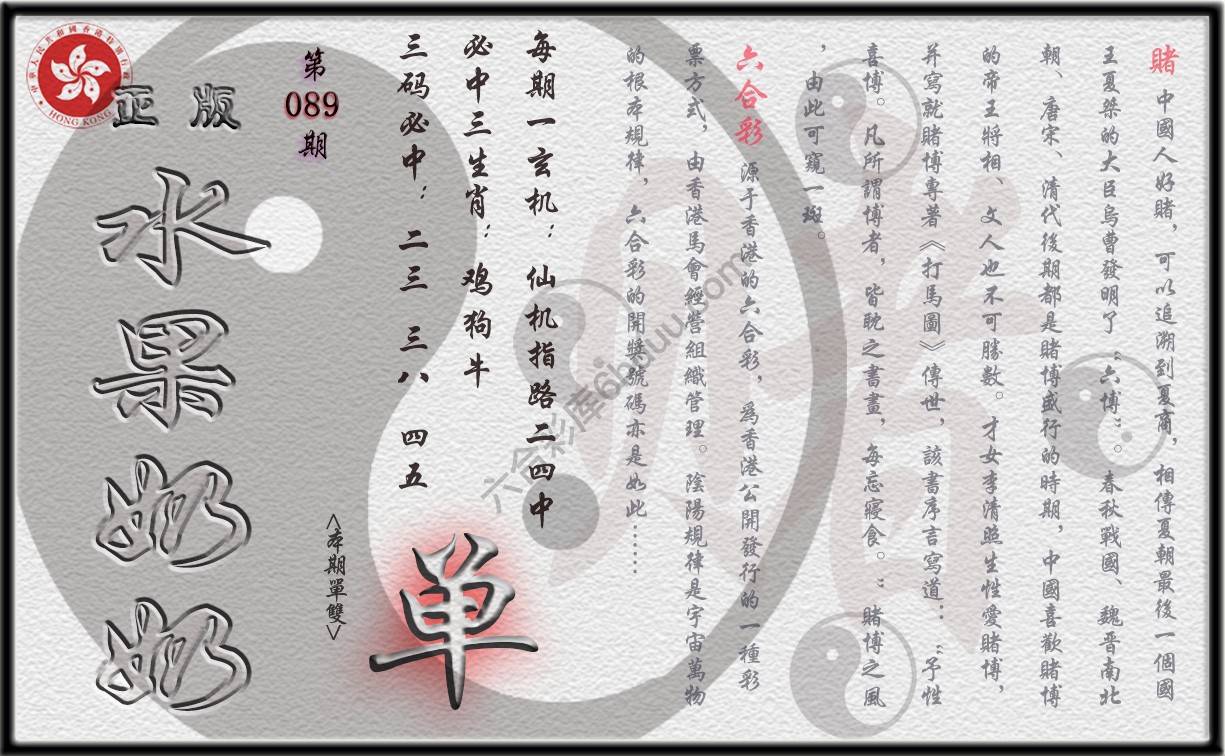 賭 中國人好賭，可以追溯到夏商，相傳夏朝最後一個國
王夏桀的大臣烏曹發明了“六博”。春秋戰國、魏晉南北
朝、唐宋、清代後期都是賭博盛行的時期，中國喜歡賭博
的帝王將相、文人也不可勝數。才女李清照生性愛賭博，
并寫就賭博專著《打馬圖》傳世，該書序言寫道：“予性
喜博。凡所謂博者，皆耽之書畫，每忘寢食。”賭博之風
，由此可窺一斑。
六合彩 源于香港的六合彩，爲香港公開發行的一種彩
票方式，由香港馬會經營組織管理。陰陽規律是宇宙萬物
的根本規律，六合彩的開獎號碼亦是如此……
每期一玄机：仙机指路二四中
必中三生肖：鸡狗牛
三码必中：二三 三八 四五
单
<本期單雙>
第
089
期
正版
水果奶奶
中華人民共和國香港特別行政區
HONG KONG
六合彩库6hduu.com